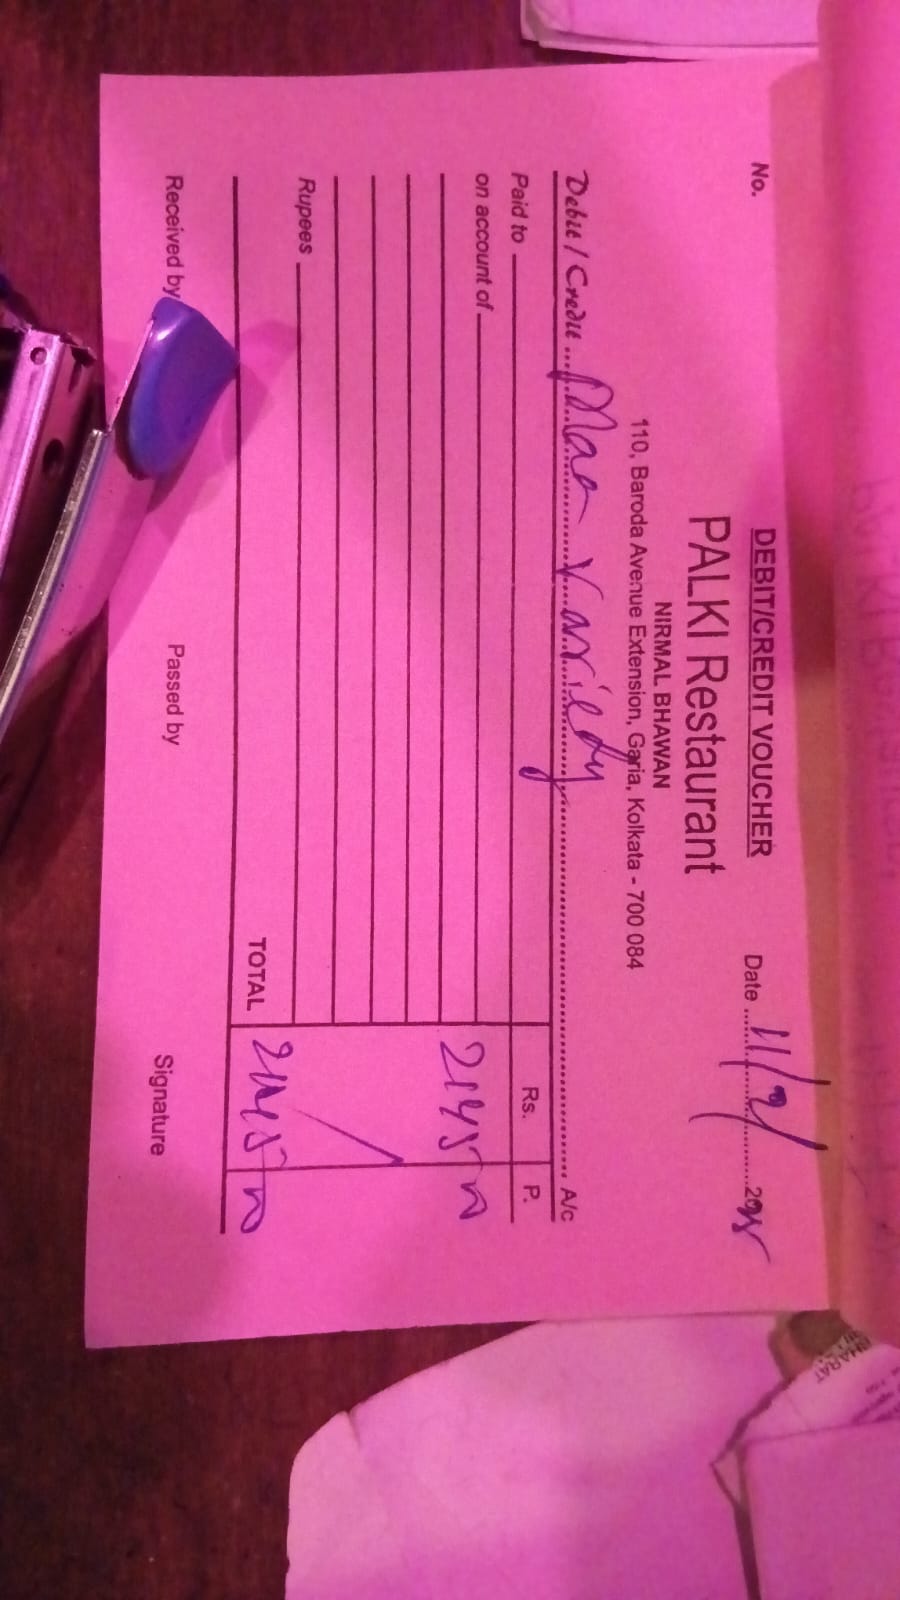 DEBIT/CREDIT VOUCHER
No.
Date 11/2/ 2025
PALKI Restaurant
NIRMAL BHAWAN
110, Baroda Avenue Extension, Garia, Kolkata - 700 084
Debit / Credit Maa Variety A/c
Paid to
Rs. P.
on account of
2145
Rupees
TOTAL 2145
Received by Passed by Signature
BHARAT